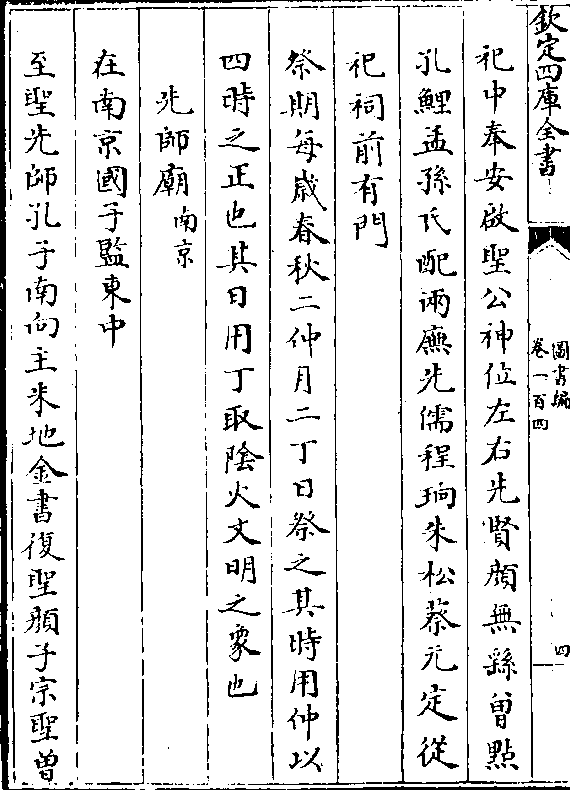 欽定四庫全書
圖書編
卷一百四
四
祀中奉安啟聖公神位左右先賢顔無繇曾㸃
孔鯉孟孫氏配兩廡先儒程珦朱松蔡元定從
祀祠前有門
祭期每歲春秋二仲月二丁日祭之其時用仲以
四時之正也其日用丁取陰火文明之象也
先師廟南京
在南京國子監東中
至聖先師孔子南向主朱地金書復聖顔子宗聖曾